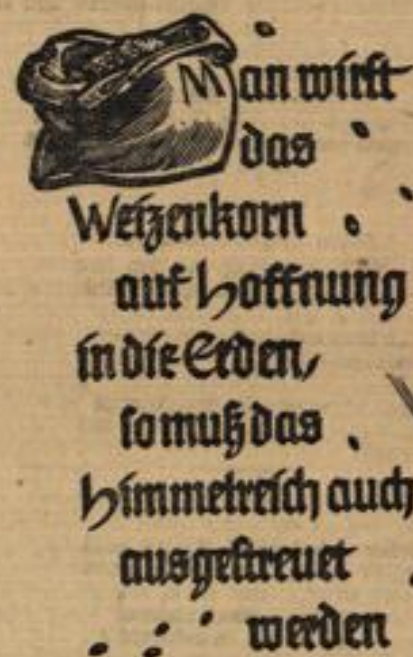 Man wirft
das
Weizenkorn
auf Hoffnung
in die Erden,
so muß das
Himmelreich auch
ausgestreuet
werden